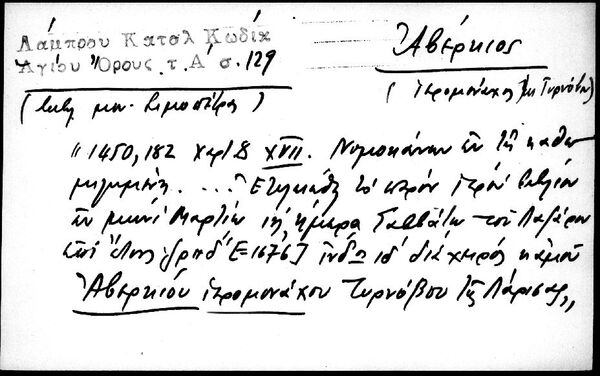 Λάμπρου Κατσλ Κώδικ
Ἁγίου Ὄρους τ. Α´ σ. 129
Ἀβέρκιος
(ἱερομονάχος ἐκ Τυρνάβου)
(βιβλ μον. Σιμοπέτρας)
"1450,182 χαρτ 8 XVII. Νομοκάνων ἐν τῇ καθω
μιλημένῃ. ...: Ἐτελειώθη τὸ παρόν ἱερόν βιβλίον
ἐν μηνί Μαρτίῳ ιη, ἡμέρα Σαββάτῳ τοῦ Λαζάρου
ἐπί ἔτους ζρπδ´ [=1676] ἰνδ ιδ´ διά χειρός κἀμοῦ
Ἀβερκιου ἱερομονάχου Τυρνάβου τῆς Λάρισας„